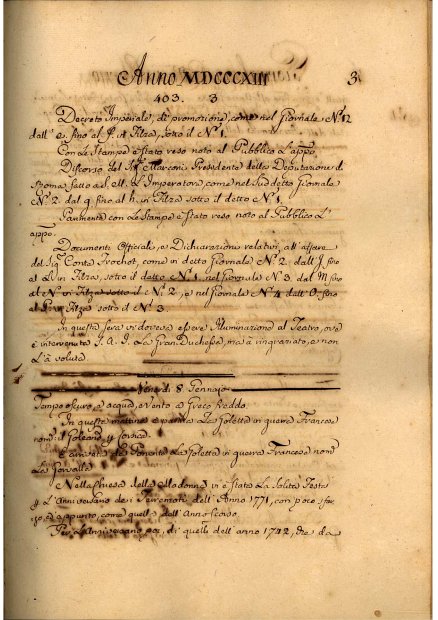 Anno MDCCCXIII 3
403. 3
Decreto Imperiale, di promozione, come nel Giornale N.° 12
dall' e. fino al f. in Filza, sotto il N.° 1.
Con le Stampe è stato reso noto al Pubblico l'appo.
Discorso del Marconi Presidente della Deputazione di
Roma fatto a S. M. l'Imperatore, come nel suddetto Giornale
N.° 2. dal g. fino al h. in Filza sotto il detto N.° 1.
Parimente con le Stampe è stato reso noto al Pubblico l'
appo.
Documenti Officiali, e Dichiarazioni relativi all'affare
del Sig.r Conte Frochot, come in detto Giornale N.° 2. dall' I. fino
al in Filza, sotto il detto N.° 1. nel Giornale N.° 3. dal M. fino
al N. in Filza sotto il N.° 2, e nel Giornale N.° 4. dall' O. fino
al P. in Filza sotto il N.° 3.
In questa sera vi doveva essere Illuminazione al Teatro, ove
è intervenuta S. A. I. la Gran Duchessa, ma à ringraziato, e non
l'à voluta.
Venerdì 8 Gennajo
Tempo oscuro, e acqua, e vento a Greco freddo.
In questa mattina è partita la Goletta in guerra Francese
nom.
È arrivata da Ponente la Goletta in guerra Francese nom.
la
Nella Chiesa della Madonna vi è stata la Solita Festa
p. l'Anniversario dei Terremoti dell'Anno 1771, con poco sfar-
zo, ed appunto, come quella dell'Anno scorso.
Per l'Anniversario poi, di quelli dell'anno 1742, che da